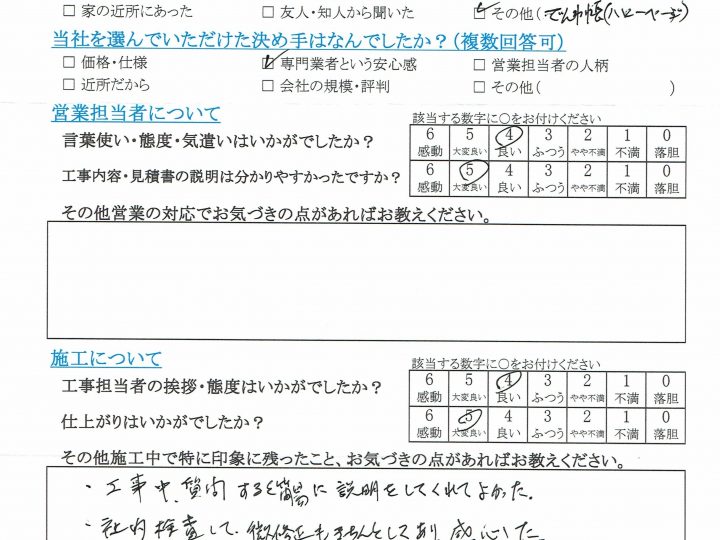 ☐ 家の近所にあった ☐ 友人・知人から聞いた ☑ その他(でんわ帳(ハローページ)
当社を選んでいただけた決め手はなんでしたか?(複数回答可)
☐ 価格・仕様 ☑ 専門業者という安心感 ☐ 営業担当者の人柄
☐ 近所だから ☐ 会社の規模・評判 ☐ その他( )
営業担当者について
該当する数字に○をお付けください
言葉使い・態度・気遣いはいかがでしたか?
6 5 4 3 2 1 0
感動 大変良い 良い ふつう やや不満 不満 落胆
工事内容・見積書の説明は分かりやすかったですか?
6 5 4 3 2 1 0
感動 大変良い 良い ふつう やや不満 不満 落胆
その他営業の対応でお気づきの点があればお教えください。
施工について
該当する数字に○をお付けください
工事担当者の挨拶・態度はいかがでしたか?
6 5 4 3 2 1 0
感動 大変良い 良い ふつう やや不満 不満 落胆
仕上がりはいかがでしたか?
6 5 4 3 2 1 0
感動 大変良い 良い ふつう やや不満 不満 落胆
その他施工中で特に印象に残ったこと、お気づきの点があればお教えください。
・工事中、質問すると簡易に説明をしてくれてよかった。
・社内検査して、微修正もきちんとしてあり、感心した。